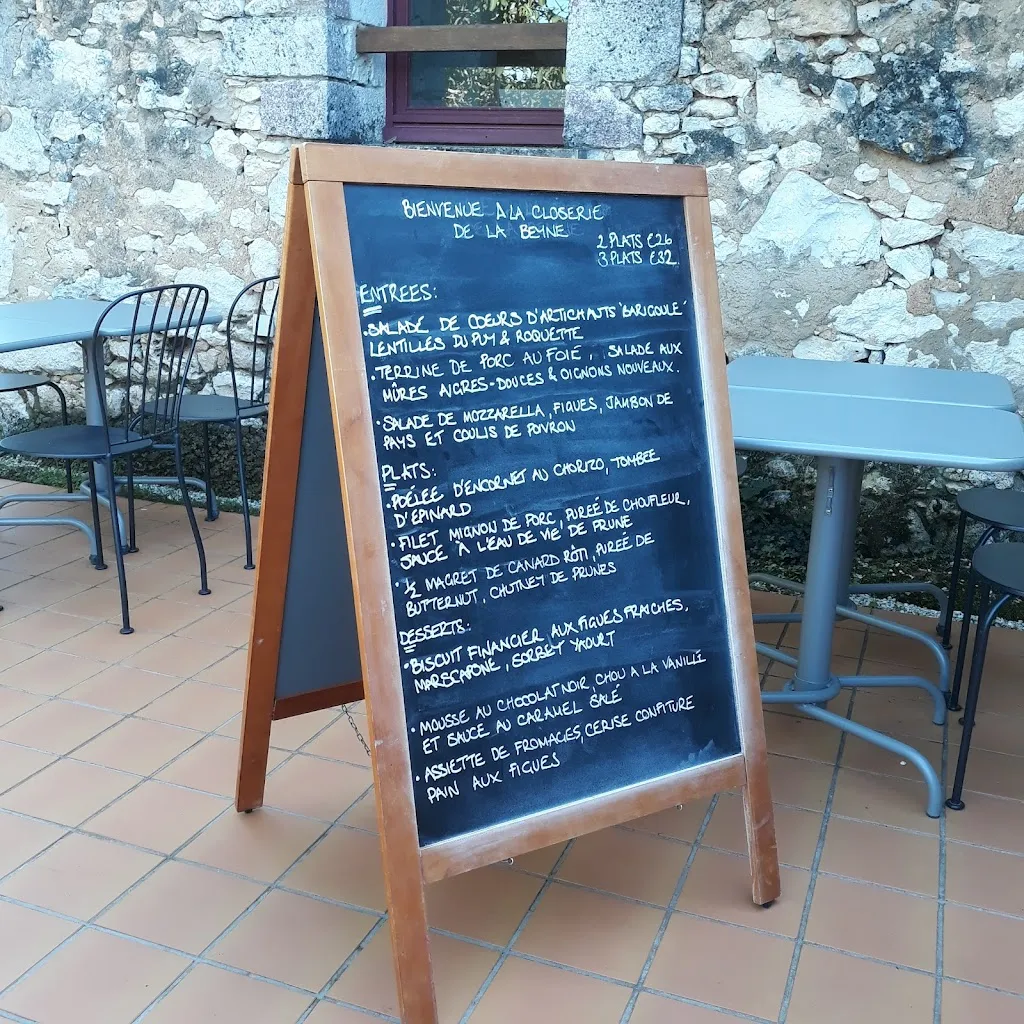 BIENVENUE A LA CLOSERIE
DE LA BEYNE
2 PLATS €26
3 PLATS €32.
ENTREES:
• SALADE DE COEURS D'ARTICHAUTS "BARIGOULE"
LENTILLES DU PUY & ROQUETTE
• TERRINE DE PORC AU FOIE, SALADE AUX
MÛRES AIGRES-DOUCES & OIGNONS NOUVEAUX.
• SALADE DE MOZZARELLA, FIGUES, JAMBON DE
PAYS ET COULIS DE POIVRON
PLATS:
• POÊLÉE D'ENCORNET AU CHORIZO, TOMBEE
D'ÉPINARD
• FILET MIGNON DE PORC, PUREÉ DE CHOUFLEUR,
SAUCE "À L'EAU DE VIE" DE PRUNE
• ½ MAGRET DE CANARD RÔTI, PUREÉ DE
BUTTERNUT, CHUTNEY DE PRUNES
DESSERTS:
• BISCUIT FINANCIER, AUX FIGUES FRAICHES,
MARSCAPONE, SORBET YAOURT
• MOUSSE AU CHOCOLAT NOIR, CHOU A LA VANILLE
ET SAUCE AU CARAMEL SALÉ
• ASSIETTE DE FROMAGES, CERISE CONFITURE
PAIN AUX FIGUES